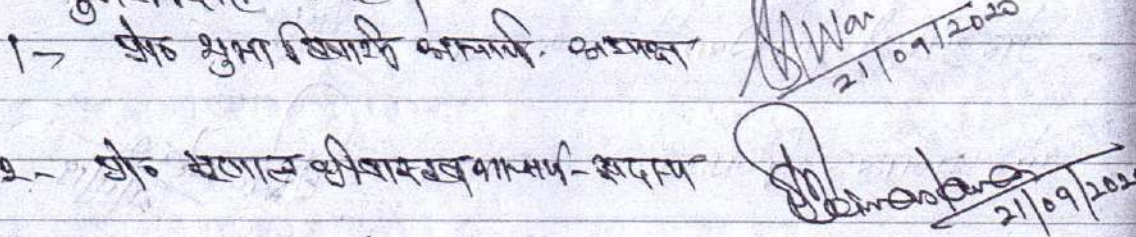 1→ प्रो० शुभा तिवारी आचार्य- अध्यक्ष
21/09/2020
2- प्रो० मृणाल श्रीवास्तव आचार्य - सदस्य
21/09/202